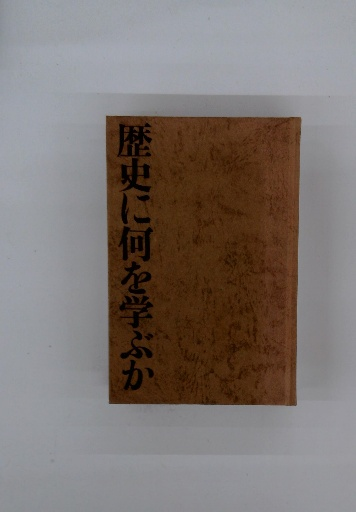 歴史に何を学ぶか